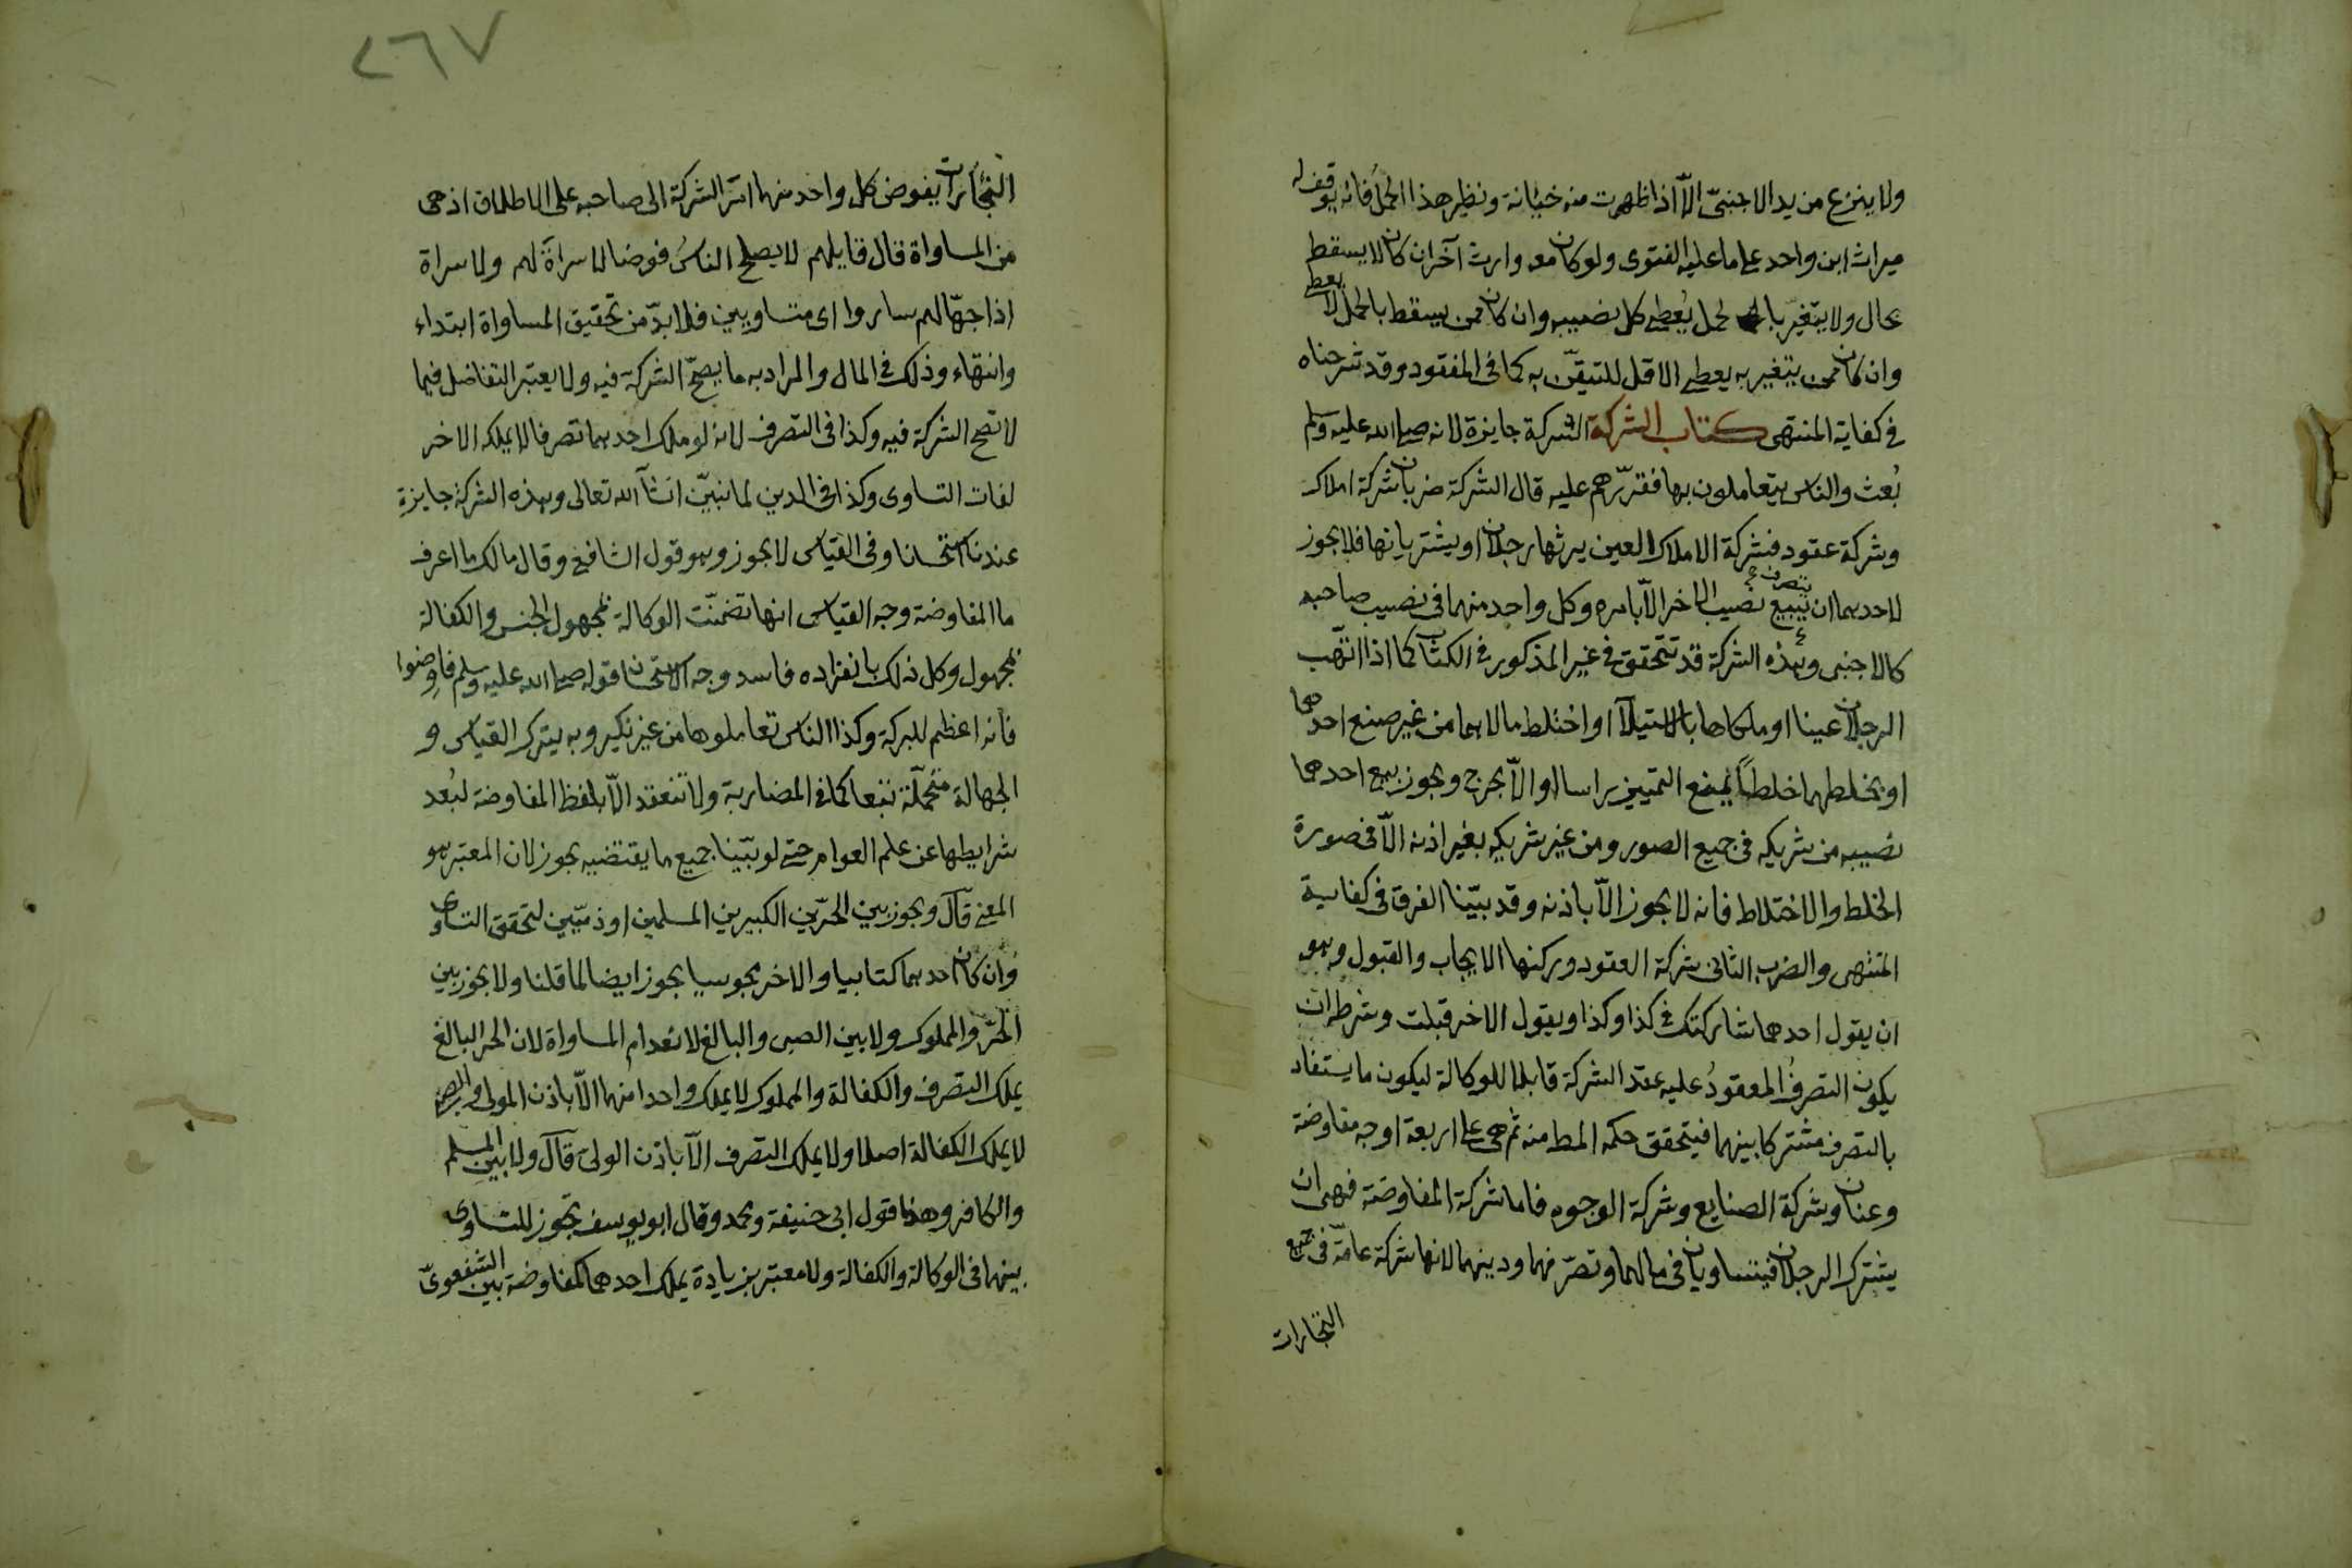 ولا ينزع من يد الاجنبيّ الّا اذا ظهرت منه خيانة ونظير هذا الحمل فانه يوقف له
ميراث ابن واحد على ما عليه الفتوى ولو كان معه وارث آخر ان كان لا يسقط
بحال ولا يتغيّر بالحمل يُعطى كل نصيبه وان كان ممن يسقط بالحمل لا يعطى
وان كان ممن يتغير به يعطى الاقل للتيقّن به كما فى المفقود وقد شرحناه
فى كفاية المنتهى كتاب الشركة الشركة جايزة لانه صلى الله عليه وسلم
بُعث والناس يتعاملون بها فقرّرهم عليه قال الشركة ضربان شركة املاك
وشركة عقود فشركة الاملاك العين يرثها رجلان او يشتريانها فلا يجوز
لاحدهما ان يبيع يتصرف فى نصيب الاخر الّا بامره وكل واحد منهما فى نصيب صاحبه
كالاجنبى وهذه الشركة قد تتحقق فى غير المذكور فى الكتاب كما اذا اتّهب
الرجلان عينا او ملكاها بالاستيلآ او اختلط مالاهما من غير صنع احدهما
او بخلطهما خلطاً يمنع التمييز راسا او الّا بحرج ويجوز بيع احدهما
نصيبه من شريكه فى جميع الصور ومن غير شريكه بغير اذنه الّا فى صورة
الخلط والاختلاط فانه لا يجوز الّا باذنه وقد بيّنا الفرق فى كفاية
المنتهى والضرب الثانى شركة العقود وركنها الايجاب والقبول وهو
ان يقول احدهما شاركتك فى كذا وكذا ويقول الاخر قبلت وشرط ان
يكون التصرفُ المعقودُ عليه عقد الشركة قابلا للوكالة ليكون ما يستفاد
بالتصرف مشتركا بينهما فيتحقق حكمه المط منه ثم هى على اربعة اوجه مفاوضة
وعنان وشركة الصنايع وشركة الوجوه فاما شركة المفاوضة فهى ان
يشترك الرجلان فيتساويان فى مالهما وتصرّفهما ودينهما لانها شركة عامّة فى جميع
التجارات
٢٦٧
التجارات يفوض كل واحد منهما امر الشركة الى صاحبه على الاطلاق اذ هى
من المساواة قال قايلهم لا يصلح الناسُ فوضا لا سراةَ لهم ولا سراة
اذا جهّالهم سادوا اى متساويين فلا بدّ من تحقيق المساواة ابتداء
وانتهاء وذلك فى المال والمراد به ما يصحّ الشركة فيه ولا يعتبر التفاضل فيما
لا تصح الشركة فيه وكذا فى التصرف لانه لو ملك احدهما تصرفا لا يملكه الاخر
لفات التساوى وكذا فى الدين لما نبيّن ان شآ الله تعالى وهذه الشركة جايزة
عندنا استحسانا وفى القياس لا يجوز وهو قول الشافعى وقال مالك ما اعرف
ما المفاوضة وجه القياس انها تضمنّت الوكالة بمجهول الجنس والكفالة
بمجهول وكل ذلك بانفراده فاسد وجه الاستحسان قوله صلى الله عليه وسلم فاوضوا
فانه اعظم للبركة وكذا الناس تعاملوها من غير نكير وبه يترك القياس و
الجهالة متحمّلة تبعا كما فى المضاربة ولا تنعقد الّا بلفظ المفاوضة لبُعد
شرايطها عن علم العوام حتى لو بيّنا جميع ما يقتضيه يجوز لان المعتبر هو
المعنى قال ويجوز بين الحرّين الكبيرين المسلمين او ذميّين لتحقق التساوى
وان كان احدهما كتابيا والاخر مجوسيا يجوز ايضا لما قلنا ولا يجوز بين
الحرّ والمملوك ولا بين الصبى والبالغ لانعدام المساواة لان الحر البالغ
يملك التصرف والكفالة والمملوك لا يملك واحدا منهما الّا باذن المولى والصبى
لا يملك الكفالة اصلا ولا يملك التصرف الّا باذن الولى قال ولا بين المسلم
والكافر وهذا قول ابى حنيفة ومحمد وقال ابو يوسف تجوز للتساوى
بينهما فى الوكالة والكفالة ولا معتبر بزيادة يملك احدهما كالمفاوضة بين الشفعوىّ